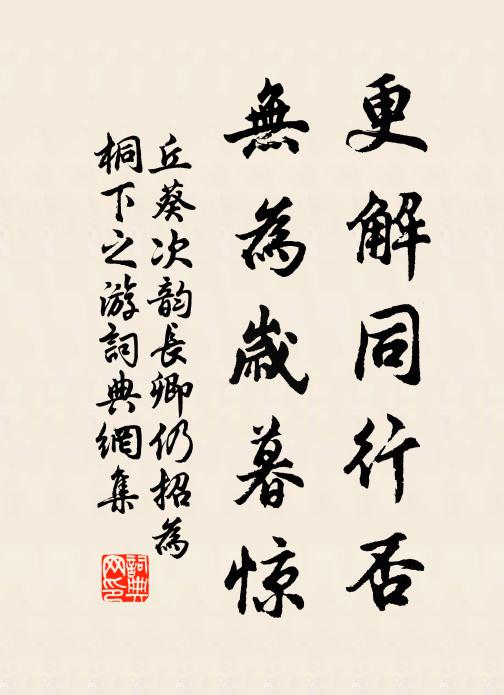 更解同行否
無為歲暮惊
丘葵次韵長卿仍招為
桐下之游詞典網集
詞典
网印